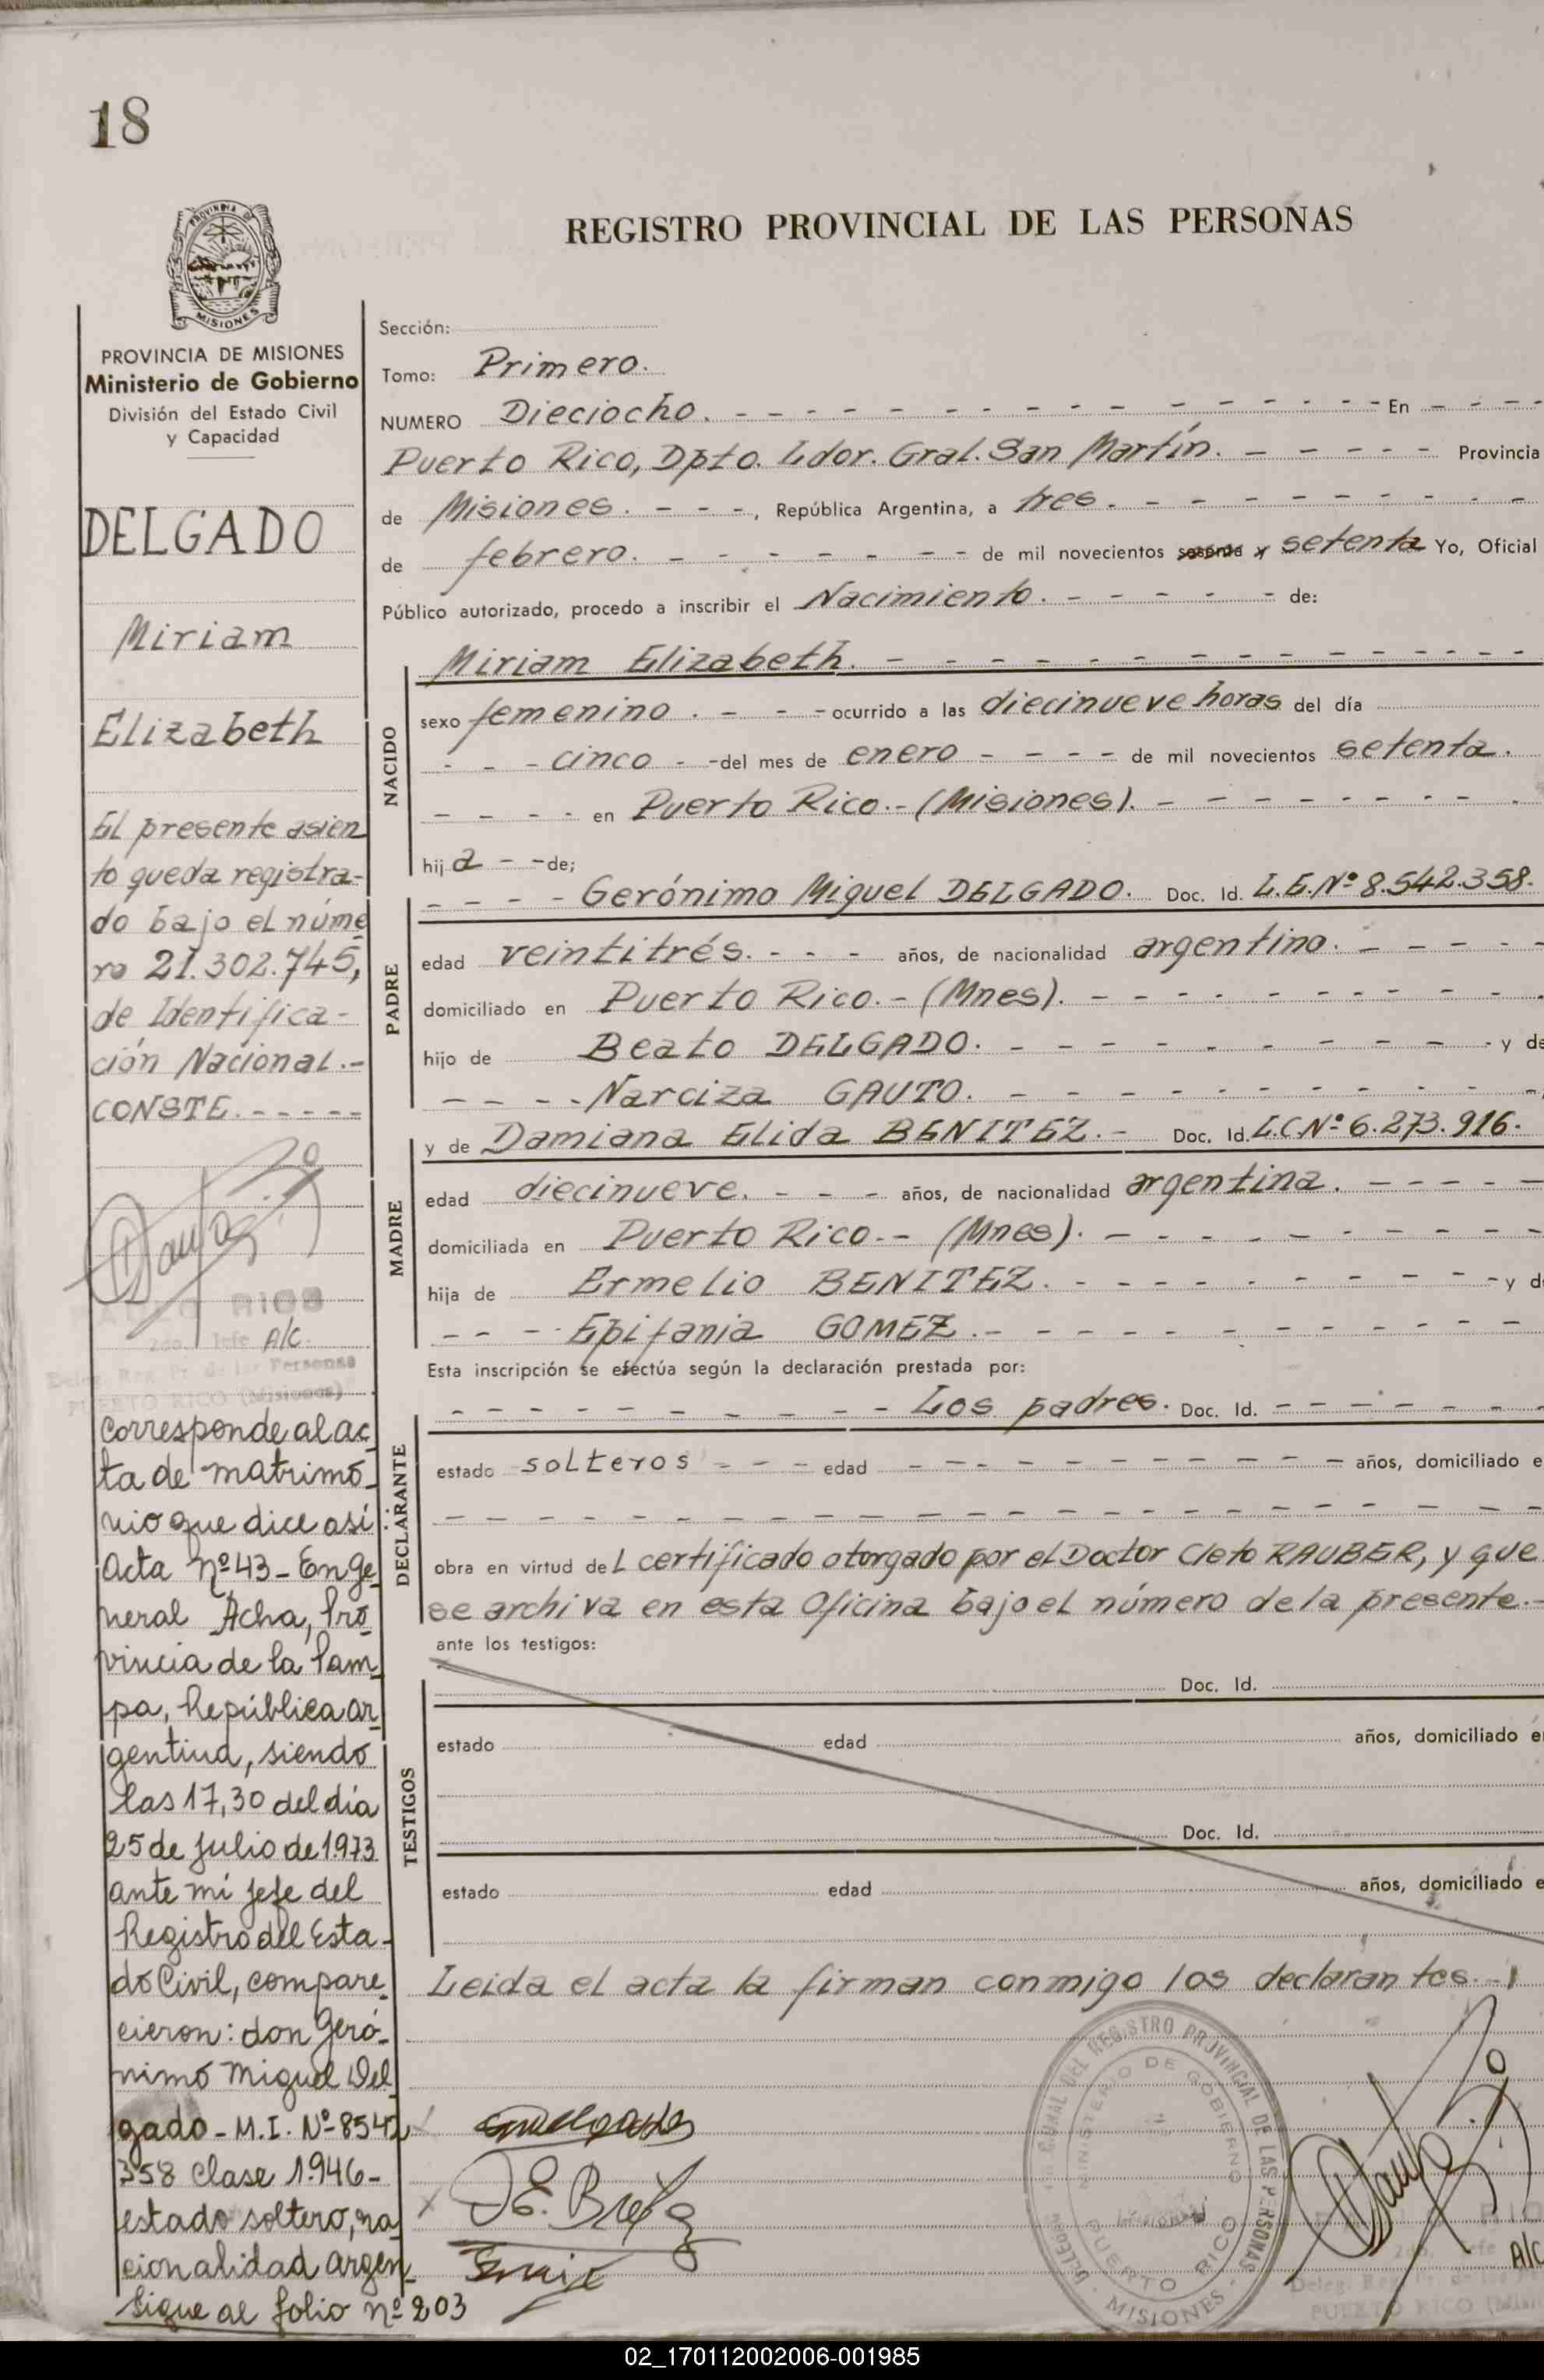 18
PROVINCIA DE
MISIONES
REGISTRO PROVINCIAL DE LAS PERSONAS
PROVINCIA DE MISIONES
Ministerio de Gobierno
División del Estado Civil
y Capacidad
DELGADO
Miriam
Elizabeth
El presente asien
to queda registra-
do bajo el núme
ro 21.302.745,
de Identifica-
ción Nacional.-
CONSTE.-----
A/C.
2do. Jefe
Deleg. Reg. Pr. de las Personas
PUERTO RICO (Misiones)
Corresponde al ac
ta de matrimo
nio que dice así:
Acta nº 43 - En Ge
neral Acha, Pro
vincia de la Pam
pa, República ar
gentina, siendo
las 17,30 del día
25 de julio de 1973
ante mí jefe del
Registro del Esta-
do Civil, compare
cieron: don Geró-
nimo Miguel Del
gado - M.I. Nº 8542
358 Clase 1.946-
estado soltero, na
cionalidad argen
Sigue al folio nº 203
Sección:
Tomo: Primero.
NUMERO Dieciocho. - - - - - - - - - - - - - - - - En - - - -
Puerto Rico, Dpto. Ldor. Gral. San Martín. - - - - - Provincia
de Misiones. - - -, República Argentina, a tres. - - - - - - - - - -
de febrero. - - - - - - - de mil novecientos sesenta y setenta Yo, Oficial
Público autorizado, procedo a inscribir el Nacimiento. - - - - - de:
Miriam Elizabeth. - - - - - - - - - - - - - -
NACIDO
sexo femenino. - - - ocurrido a las diecinueve horas del día
- - - cinco - - del mes de enero - - - - de mil novecientos setenta.
- - - - en Puerto Rico.- (Misiones). - - - - - - - -
hij a - - de;
PADRE
- - - - Gerónimo Miguel DELGADO. Doc. Id. L.E.Nº 8.542.358.
edad veintitrés. - - - años, de nacionalidad argentino. - - - - -
domiciliado en Puerto Rico.- (Mnes). - - - - - - - - - -
hijo de Beato DELGADO. - - - - - - - - - - y de
- - - - Narciza GAUTO. - - - - - - - - - - -
MADRE
y de Damiana Elida BENITEZ.- Doc. Id. L.C Nº 6.273.916.
edad diecinueve. - - - años, de nacionalidad argentina. - - - - -
domiciliada en Puerto Rico.- (Mnes). - - - - - - - - -
hija de Ermelio BENITEZ. - - - - - - - - - y d
- - - - Epifania GOMEZ. - - - - - - - - - - - -
Esta inscripción se efectúa según la declaración prestada por:
DECLARANTE
- - - - - - - - - - Los padres. Doc. Id. - - - - - - -
estado solteros - - - edad - - - - - - - - - - - años, domiciliado e
- - - - - - - - - - - - - - - - - - - - - -
obra en virtud de l certificado otorgado por el Doctor Cleto RAUBER, y que
se archiva en esta Oficina bajo el número de la presente.-
ante los testigos:
TESTIGOS
Doc. Id.
estado edad años, domiciliado e
Doc. Id.
estado edad años, domiciliado e
Leida el acta la firman conmigo los declarantes.-
DELEGACIONAL DEL REGISTRO PROVINCIAL DE LAS PERSONAS
MINISTERIO DE GOBIERNO
PUERTO RICO
MISIONES
A/C
Deleg. Reg.
PUERTO RICO (Misi
02_170112002006-001985